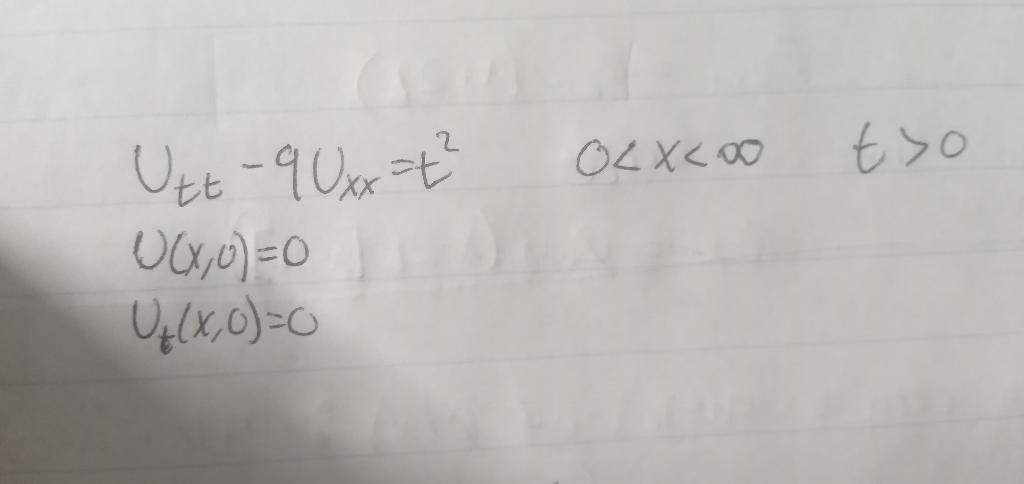 U_tt - 9U_xx = t² 0<x<∞ t>0
U(x,0)=0
U_t(x,0)=0